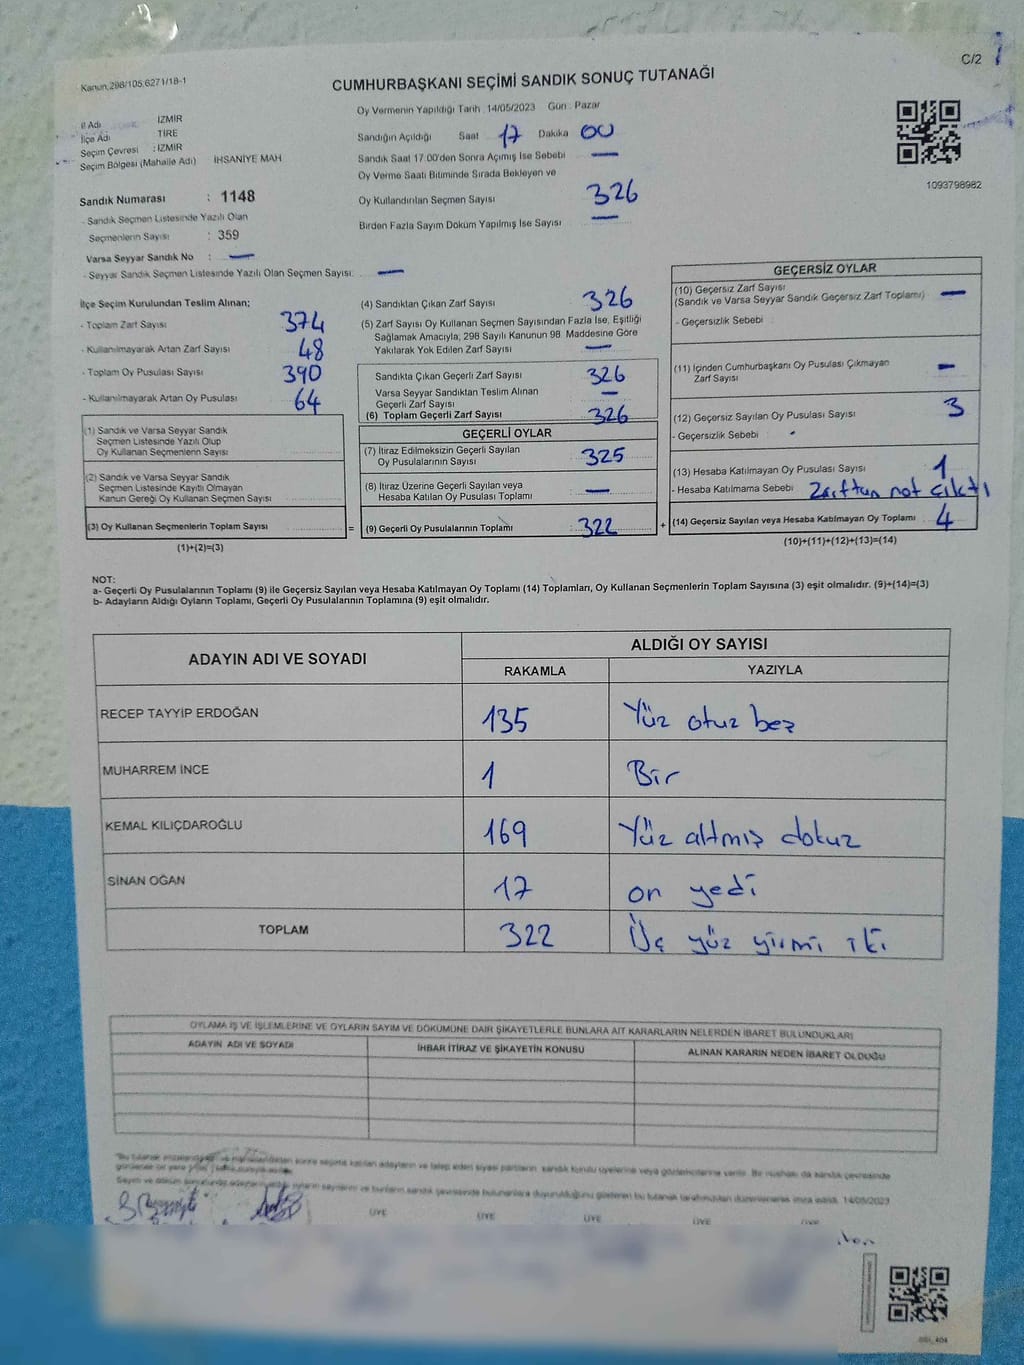 Kanun,298/105,6271/18-1
C/2
CUMHURBAŞKANI SEÇİMİ SANDIK SONUÇ TUTANAĞI
İl Adı İZMİR
İlçe Adı TİRE
Seçim Çevresi : İZMİR
Seçim Bölgesi (Mahalle Adı) İHSANİYE MAH
Sandık Numarası : 1148
- Sandık Seçmen Listesinde Yazılı Olan
Seçmenlerin Sayısı : 359
Varsa Seyyar Sandık No : —
- Seyyar Sandık Seçmen Listesinde Yazılı Olan Seçmen Sayısı: —
Oy Vermenin Yapıldığı Tarih 14/05/2023 Gün : Pazar
Sandığın Açıldığı Saat 17 Dakika 00
Sandık Saat 17.00'den Sonra Açımış İse Sebebi —
Oy Verme Saati Bitiminde Sırada Bekleyen ve
Oy Kullandırılan Seçmen Sayısı 326
Birden Fazla Sayım Döküm Yapılmış İse Sayısı —
1093798982
İlçe Seçim Kurulundan Teslim Alınan;
- Toplam Zarf Sayısı 374
- Kullanılmayarak Artan Zarf Sayısı 48
- Toplam Oy Pusulası Sayısı 390
- Kullanılmayarak Artan Oy Pusulası 64
(1) Sandık ve Varsa Seyyar Sandık
Seçmen Listesinde Yazılı Olup
Oy Kullanan Seçmenlerin Sayısı
(2) Sandık ve Varsa Seyyar Sandık
Seçmen Listesinde Kayıtlı Olmayan
Kanun Gereği Oy Kullanan Seçmen Sayısı
(3) Oy Kullanan Seçmenlerin Toplam Sayısı =
(1)+(2)=(3)
(4) Sandıktan Çıkan Zarf Sayısı 326
(5) Zarf Sayısı Oy Kullanan Seçmen Sayısından Fazla İse, Eşitliği
Sağlamak Amacıyla; 298 Sayılı Kanunun 98. Maddesine Göre
Yakılarak Yok Edilen Zarf Sayısı —
Sandıkta Çıkan Geçerli Zarf Sayısı 326
Varsa Seyyar Sandıktan Teslim Alınan
Geçerli Zarf Sayısı —
(6) Toplam Geçerli Zarf Sayısı 326
GEÇERLİ OYLAR
(7) İtiraz Edilmeksizin Geçerli Sayılan
Oy Pusulalarının Sayısı : 325
(8) İtiraz Üzerine Geçerli Sayılan veya
Hesaba Katılan Oy Pusulası Toplamı : —
(9) Geçerli Oy Pusulalarının Toplamı : 322 +
GEÇERSİZ OYLAR
(10) Geçersiz Zarf Sayısı
(Sandık ve Varsa Seyyar Sandık Geçersiz Zarf Toplamı) —
- Geçersizlik Sebebi :
(11) İçinden Cumhurbaşkanı Oy Pusulası Çıkmayan
Zarf Sayısı —
(12) Geçersiz Sayılan Oy Pusulası Sayısı : 3
- Geçersizlik Sebebi :
(13) Hesaba Katılmayan Oy Pusulası Sayısı 1
- Hesaba Katılmama Sebebi : Zarftan not çıktı
(14) Geçersiz Sayılan veya Hesaba Katılmayan Oy Toplamı : 4
(10)+(11)+(12)+(13)=(14)
NOT:
a- Geçerli Oy Pusulalarının Toplamı (9) ile Geçersiz Sayılan veya Hesaba Katılmayan Oy Toplamı (14) Toplamları, Oy Kullanan Seçmenlerin Toplam Sayısına (3) eşit olmalıdır. (9)+(14)=(3)
b- Adayların Aldığı Oyların Toplamı, Geçerli Oy Pusulalarının Toplamına (9) eşit olmalıdır.
ADAYIN ADI VE SOYADI ALDIĞI OY SAYISI
RAKAMLA YAZIYLA
RECEP TAYYİP ERDOĞAN 135 Yüz otuz beş
MUHARREM İNCE 1 Bir
KEMAL KILIÇDAROĞLU 169 Yüz altmış dokuz
SİNAN OĞAN 17 on yedi
TOPLAM 322 Üç yüz yirmi iki
OYLAMA İŞ VE İŞLEMLERİNE VE OYLARIN SAYIM VE DÖKÜMÜNE DAİR ŞİKAYETLERLE BUNLARA AİT KARARLARIN NELERDEN İBARET BULUNDUKLARI
ADAYIN ADI VE SOYADI İHBAR İTİRAZ VE ŞİKAYETİN KONUSU ALINAN KARARIN NEDEN İBARET OLDUĞU
sonra seçime katılan adayların ve talep eden siyasi partilerin sandık kurulu üyelerine veya gözlemcilerine verilir. Bir nüshası da sandık çevresinde
bu tutanak tarafımızdan düzenlenerek imza edildi. 14/05/2023
ÜYE ÜYE ÜYE ÜYE ÜYE